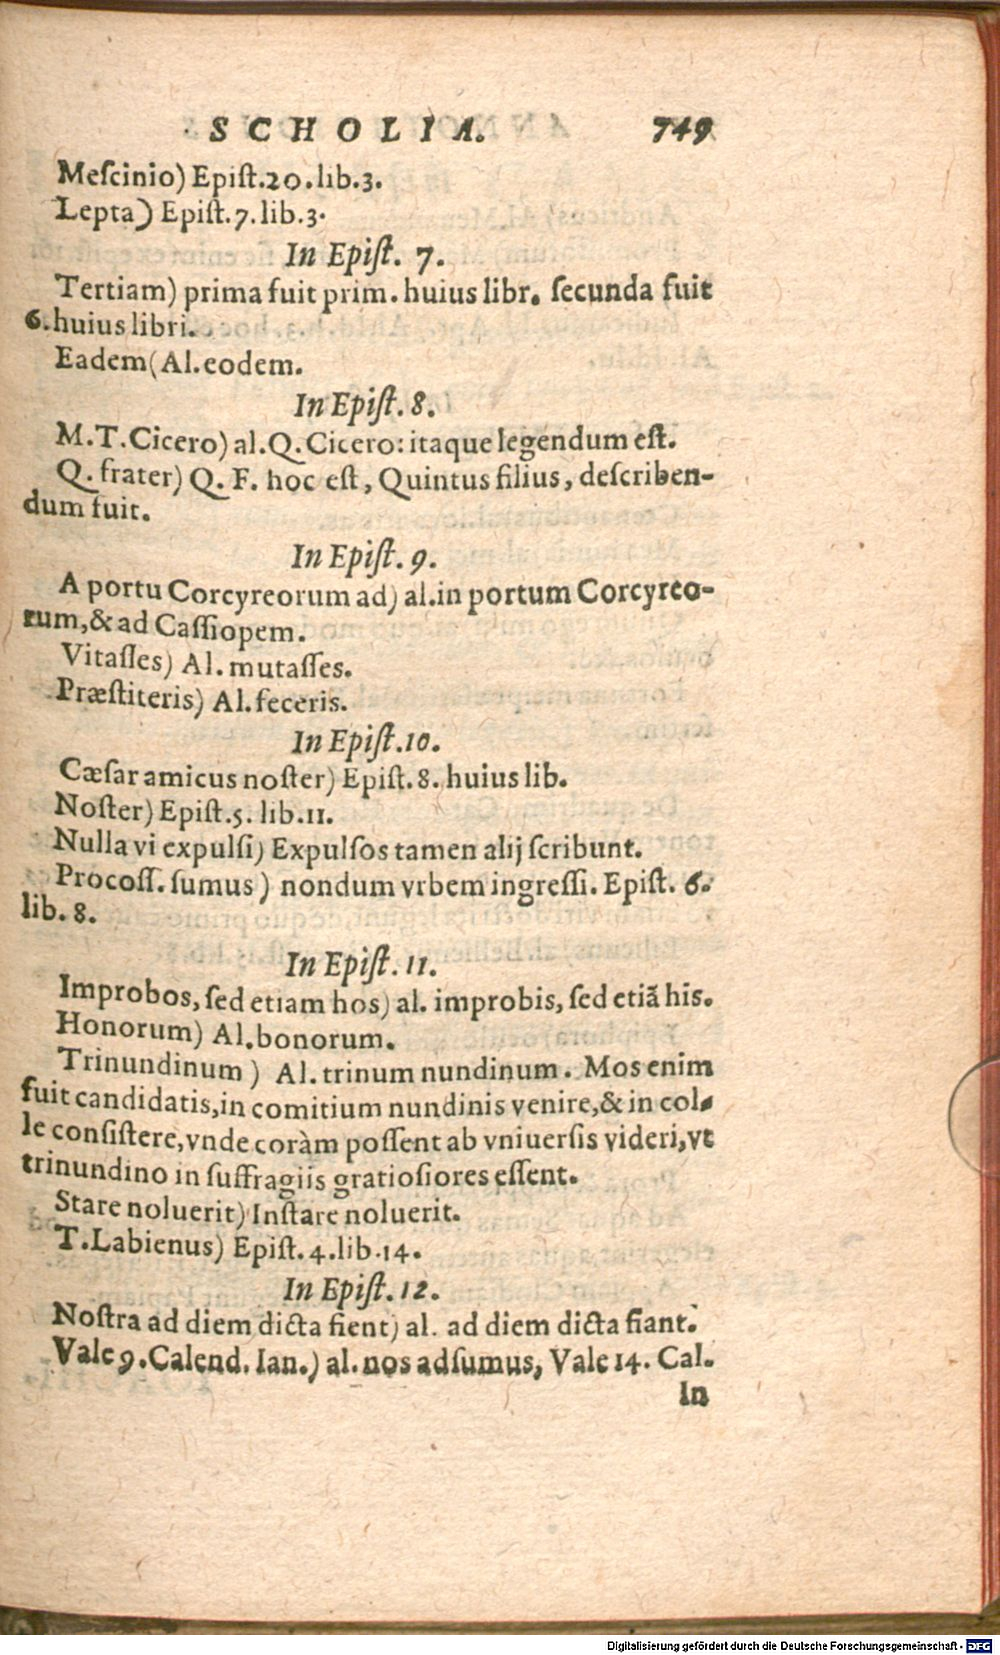 SCHOLIA. 749
Meſcinio) Epiſt.20.lib.3.
Lepta) Epiſt.7.lib.3.
In Epiſt. 7.
Tertiam) prima fuit prim. huius libr. ſecunda fuit
6.huius libri.
Eadem(Al.eodem.
In Epiſt. 8.
M.T.Cicero) al.Q.Cicero: itaque legendum eſt.
Q. frater) Q. F. hoc eſt, Quintus filius, deſcriben-
dum fuit.
In Epiſt. 9.
A portu Corcyreorum ad) al.in portum Corcyreo-
rum,& ad Caſſiopem.
Vitaſſes) Al. mutaſſes.
Præſtiteris) Al. feceris.
In Epiſt.10.
Cæſar amicus noſter) Epiſt.8. huius lib.
Noſter) Epiſt.5. lib.11.
Nulla vi expulſi) Expulſos tamen alij ſcribunt.
Procoſſ. ſumus) nondum vrbem ingreſſi. Epiſt. 6.
lib. 8.
In Epiſt. 11.
Improbos, ſed etiam hos) al. improbis, ſed etiã his.
Honorum) Al.bonorum.
Trinundinum) Al. trinum nundinum. Mos enim
fuit candidatis,in comitium nundinis venire,& in col-
le conſiſtere,vnde coràm poſſent ab vniuerſis videri,vt
trinundino in ſuffragiis gratioſiores eſſent.
Stare noluerit) Inſtare noluerit.
T.Labienus) Epiſt.4.lib.14.
In Epiſt.12.
Noſtra ad diem dicta fient) al. ad diem dicta fiant.
Vale 9.Calend. Ian.) al. nos adſumus, Vale 14. Cal.
In
Digitalisierung gefördert durch die Deutsche Forschungsgemeinschaft - DFG